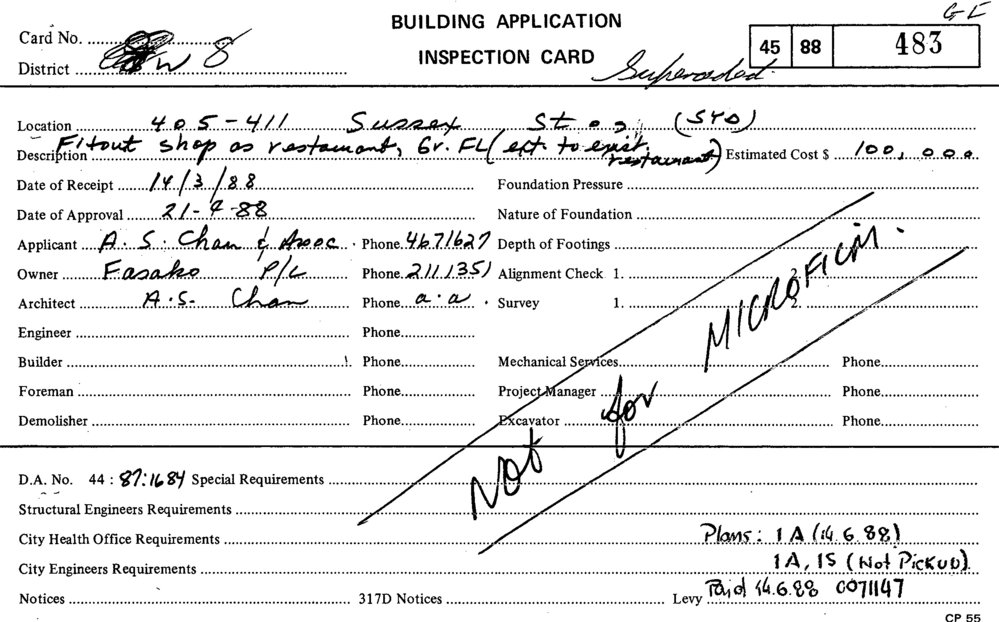 BUILDING APPLICATION
INSPECTION CARD
GE
45 88 483
Card No.
District W 8
Superseded.
Location 405-411 Sussex St (SYD)
Description Fitout shop as restaurant, Gr. FL (ext. to exist. restaurant) Estimated Cost $ 100,000
Date of Receipt 14/3/88 Foundation Pressure
Date of Approval 21-4-88 Nature of Foundation
Applicant A. S. Chan & Assoc. Phone 4671627 Depth of Footings
Owner Fasako P/L Phone 2111351 Alignment Check 1. 2.
Architect A.S. Chan Phone a.a. Survey 1. 2.
Engineer Phone
Builder Phone Mechanical Services Phone
Foreman Phone Project Manager Phone
Demolisher Phone Excavator Phone
Not for MICROFILM.
D.A. No. 44 : 87:1684 Special Requirements
Structural Engineers Requirements
City Health Office Requirements Plans: 1A (14.6.88)
City Engineers Requirements 1A, 1S (Not Pickup)
Notices 317D Notices Levy Paid 14.6.88 0071147
CP 55